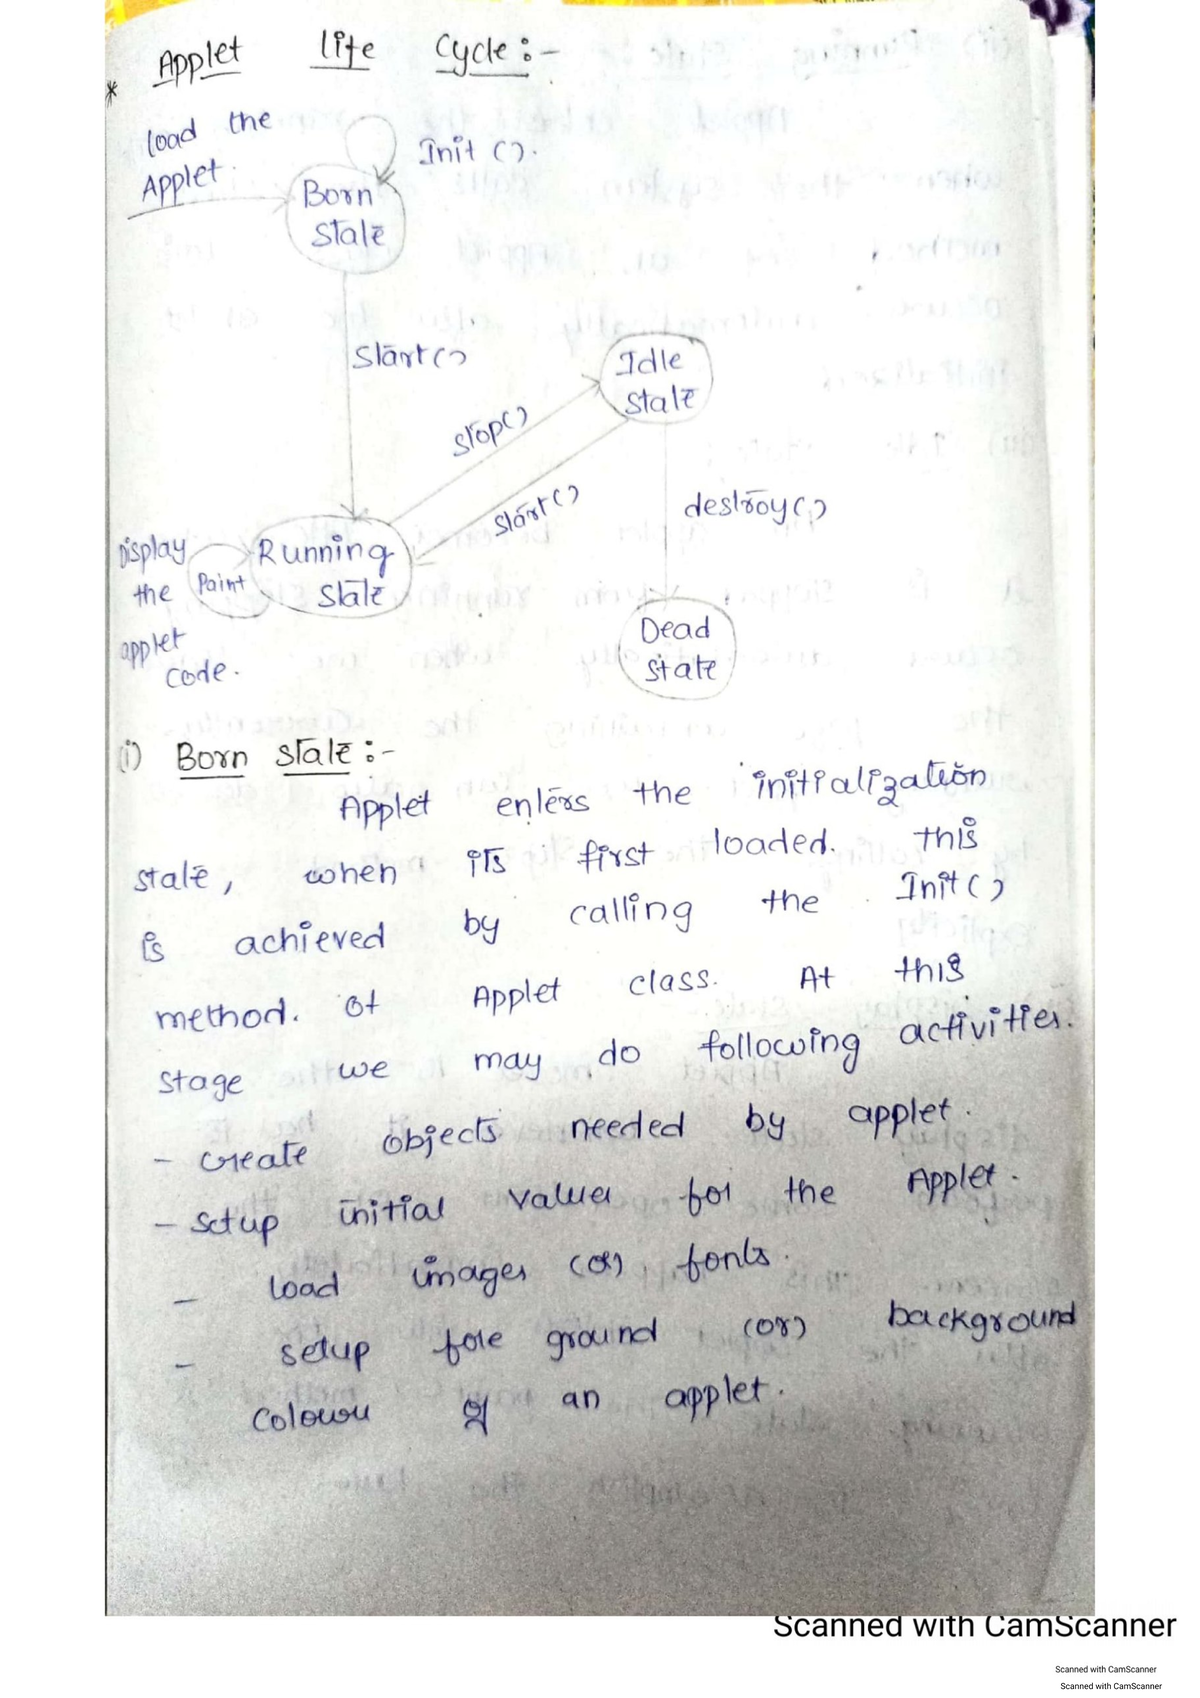 * Applet life Cycle:-
load the
Applet.
Init ().
Born
State
Start()
Idle
State
Stop()
Start()
destroy()
Display
the
applet
Code.
Paint
Running
State
Dead
State
(i) Born State:-
Applet enters the initialization
state, when its first loaded. this
is achieved by calling the Init()
method. of Applet class. At this
stage we may do following activities.
- create objects needed by applet.
- Setup initial values for the Applet.
- load images (or) fonts.
- setup fore ground (or) background
colour of an applet.
Scanned with CamScanner
Scanned with CamScanner
Scanned with CamScanner